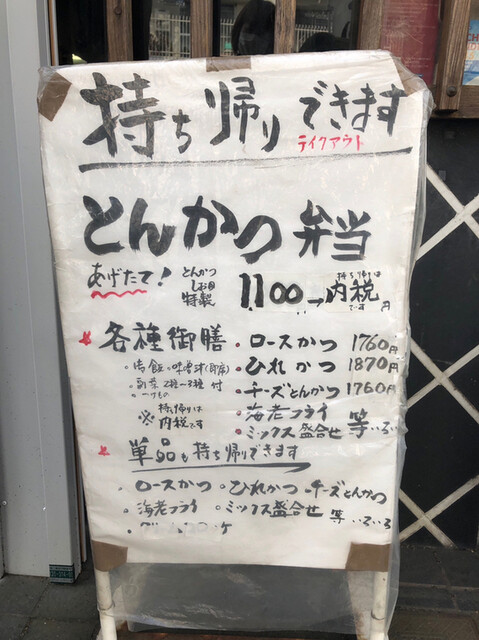 持ち帰りできます
テイクアウト
とんかつ弁当
あげたて!
とんかつ
しお田
特製
1100→内税
持ち帰りは
です 円
各種御膳
・御飯・味噌汁(即席)
・副菜2種〜3種 付
・つけもの
※持ち帰りは
内税です
・ロースかつ 1760円
・ひれかつ 1870円
・チーズとんかつ 1760円
・海老フライ
・ミックス盛合せ 等いろいろ
単品も持ち帰りできます
・ロースかつ ・ひれかつ ・チーズとんかつ
・海老フライ ・ミックス盛合せ 等いろいろ